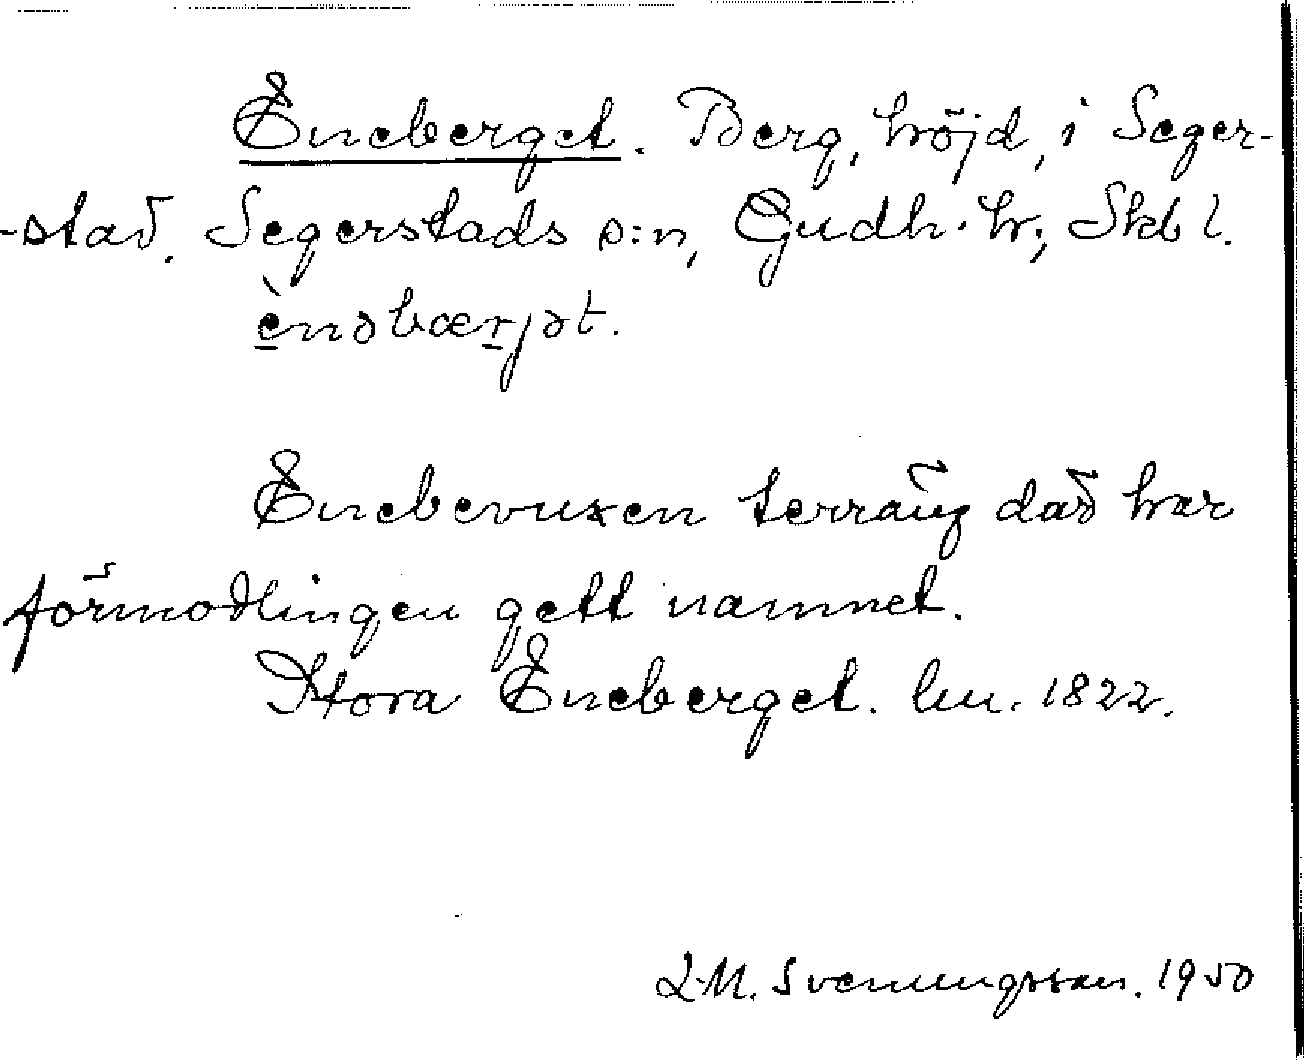 Eneberget. Berg, höjd, i Seger-
-stad. Segerstads s:n, Gudh. hr; Skbl.
ènəbærjət.
Enebevuxen terräng där har
förmodligen gett namnet.
Stora Eneberget. lm. 1822.
L.M. Svenungsson. 1950